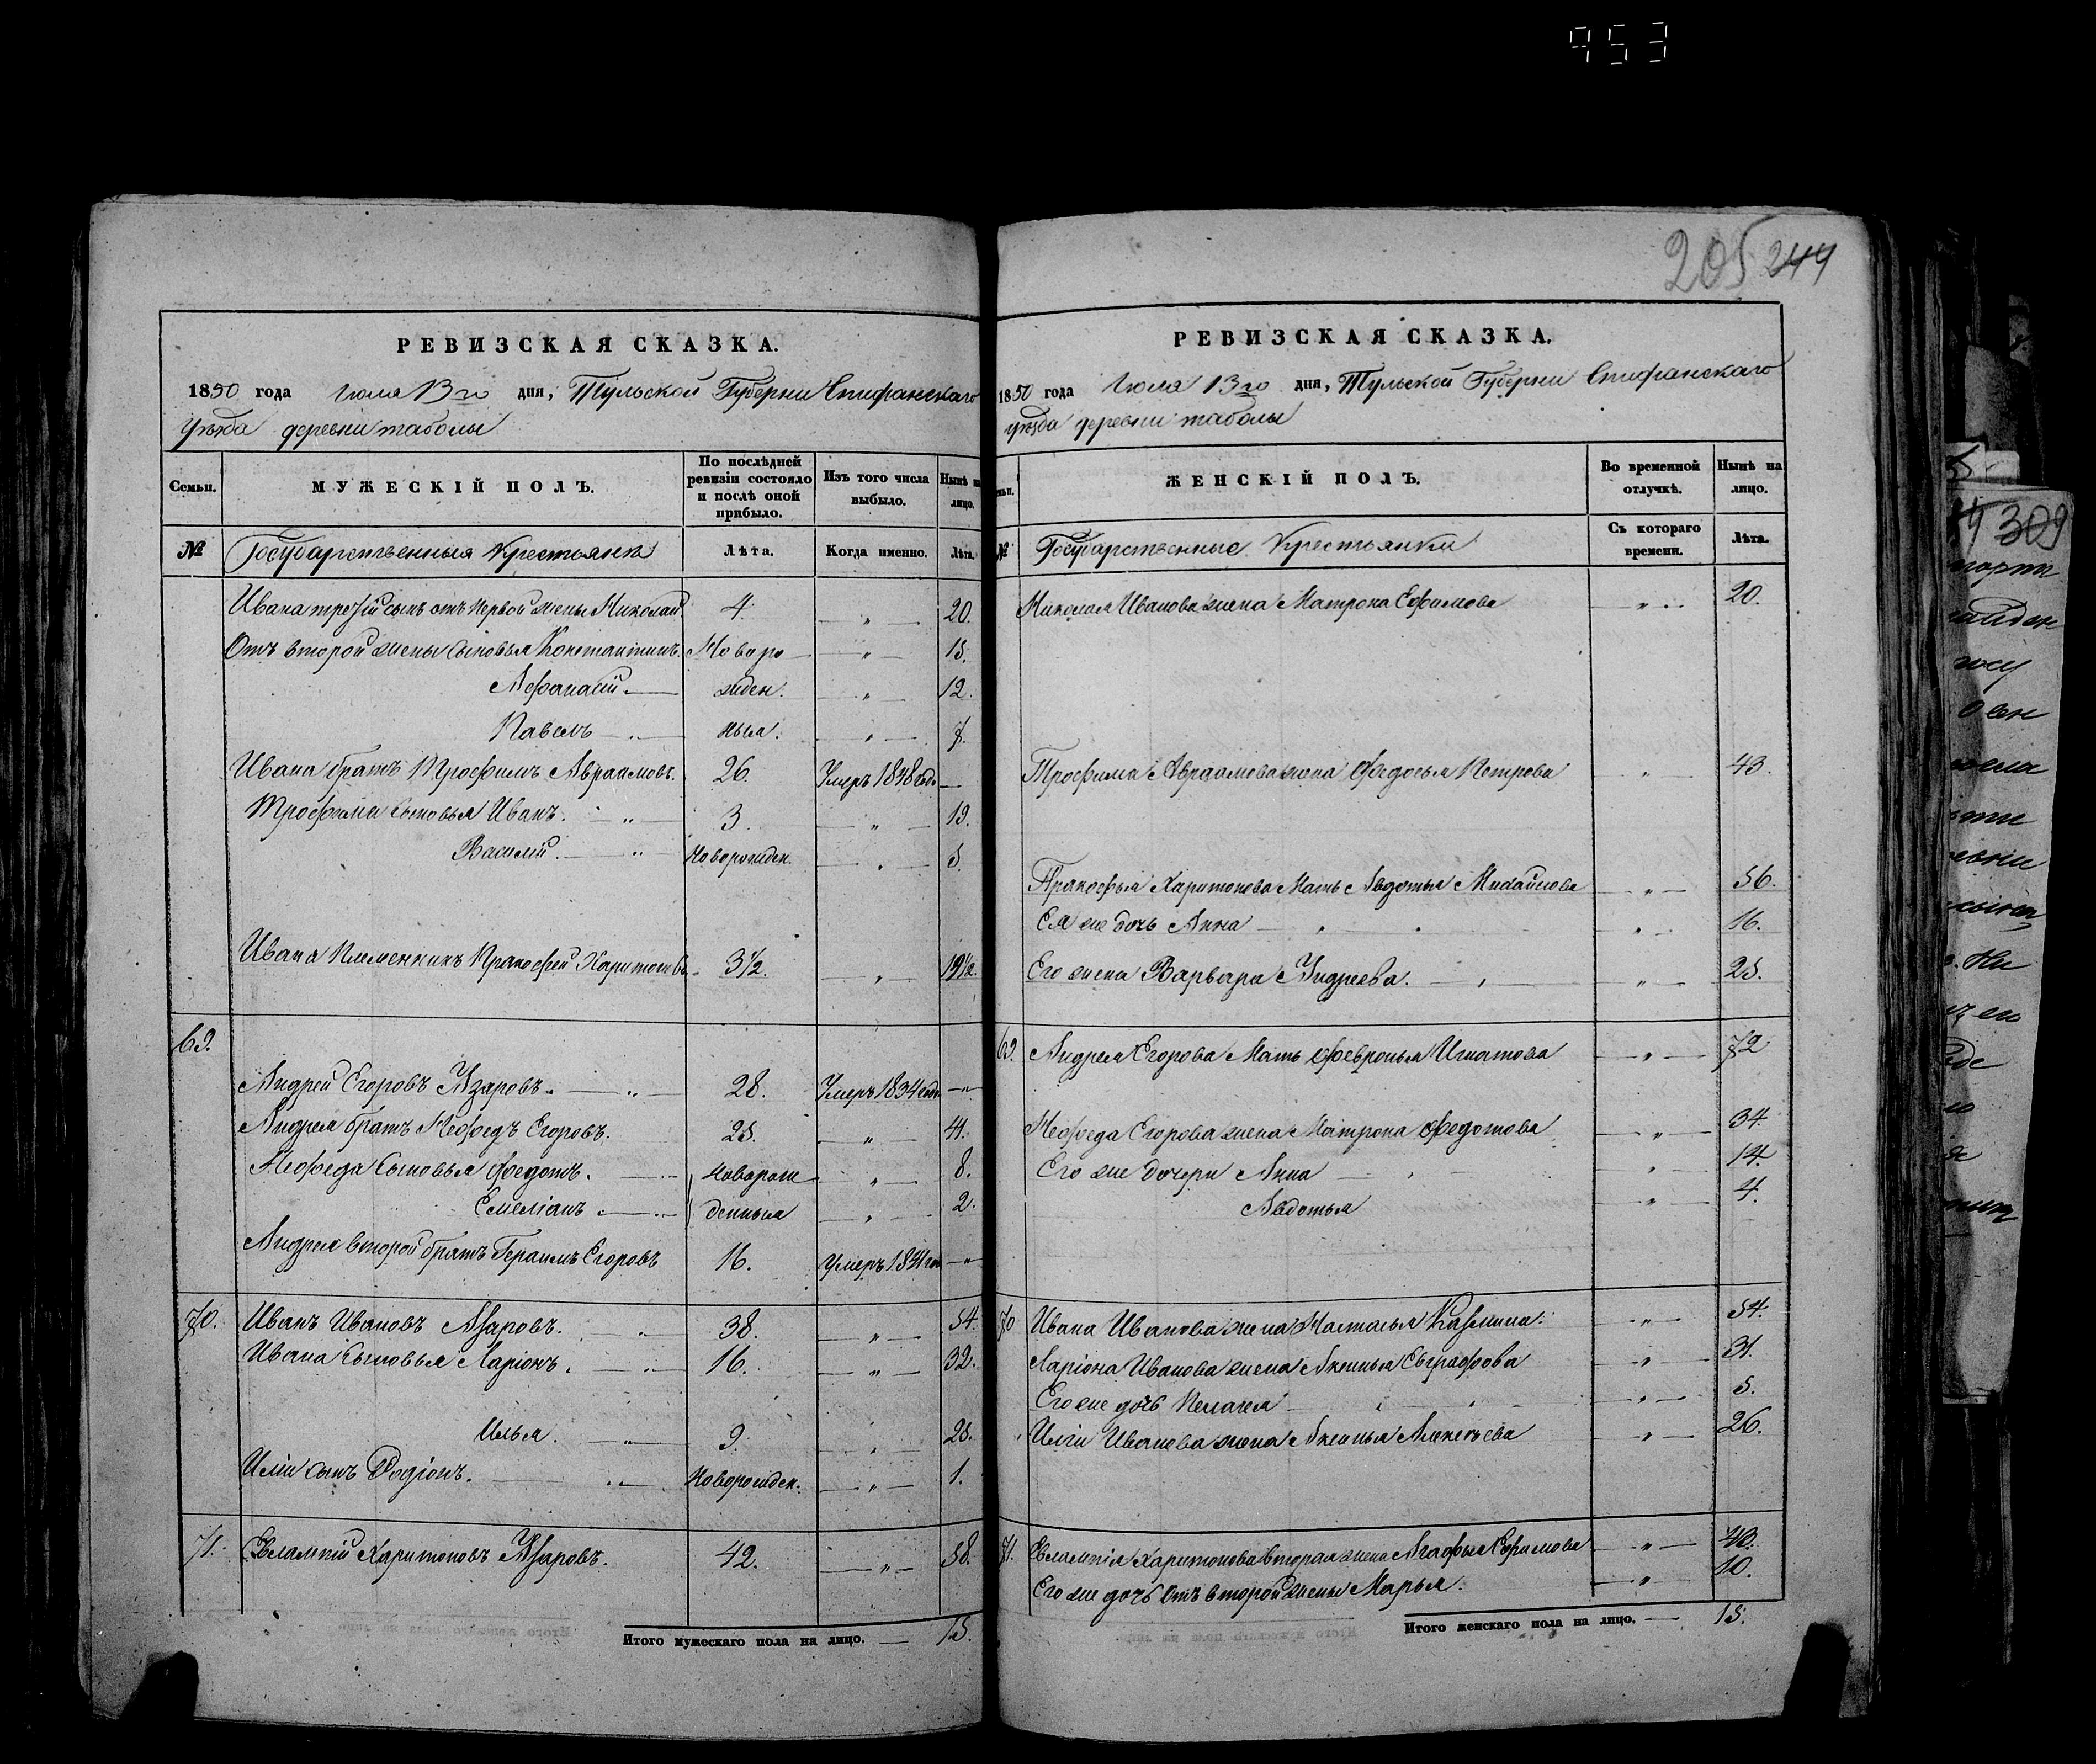 953
205 244
РЕВИЗСКАЯ СКАЗКА.
1850 года Июля 13го дня, Тульской Губерни Епифанскаго
Уѣзда деревни таболы
Семьи. МУЖЕСКІЙ ПОЛЪ. По послѣдней ревизіи состояло и послѣ оной прибыло. Изъ того числа выбыло. Нынѣ на лицо.
№ Государственныя Крестьяня Лѣта. Когда именно. Лѣта.
Ивана третій сынъ отъ первой жены Николай 4. — „ — 20.
Отъ второй жены сыновья Константинъ. Новоро — „ — 15.
Афанасій. — жден. — „ — 12.
Павелъ — ныя. — „ — 7.
Ивана братъ Трофимъ Авраамовъ. 26. Умеръ 1848 годо —
Трофима сыновья Иванъ. — „ — 3. — „ — 19.
Василій. — „ Новорожден. — „ — 5.
Ивана Племенникъ Прокофей Харитоновъ 3½. — „ — 19½
69.
Андрей Егоровъ Азаровъ. — „ — 28. Умеръ 1834 годо — „ —
Андрея братъ Нефедъ Егоровъ. 25. — „ — 41.
Нефеда Сыновья Федотъ. — Новорож — „ — 8.
Емеліанъ — денныя — „ — 2.
Андрея второй братъ Герасимъ Егоровъ 16. Умеръ 1841 го — „ —
70. Иванъ Ивановъ Азаровъ. „ 38. — „ — 54.
Ивана Сыновья Ларіонъ. — „ — 16. — „ — 32.
Илья. — „ — 9. — „ — 25.
Иліи сынъ Родіонъ. — Новорожден. — „ — 1.
71. Евлампій Харитоновъ Азаровъ. 42. — „ — 58.
Итого мужескаго пола на лицо. — 15.
РЕВИЗСКАЯ СКАЗКА.
1850 года Июля 13го дня, Тульской Губерни Епифанскаго
уѣзда деревни таболы
ЖЕНСКІЙ ПОЛЪ. Во временной отлучкѣ. Нынѣ на лицо.
№ Государственные Крестьянки Съ котораго времени. Лѣта.
Николая Иванова жена Матрона Ефимова — „ — 20.
Трофима Авраамова жена Федосья Петрова — „ — 43.
Прокофья Харитонова Мать Авдотья Михайлова — „ — 56.
Ея же дочь Анна — „ — 16.
Его жена Варвара Андреева. — „ — 25.
69. Андрея Егорова Мать Февронья Игнатова — „ — 72
Нефеда Егорова жена Матрона Федотова — „ — 34.
Его же дочери Анна — „ — 14.
Авдотья — „ — 4.
70 Ивана Иванова жена Настасья Казмина: — „ — 54.
Ларіона Иванова жена Аксинья Евграфова — „ — 31.
Его же дочь Пелагея — „ — 5.
Иліи Иванова жена Аксинья Алексѣева — „ — 26.
71. Евлампія Харитонова вторая жена Агафья Ефимова — „ — 43.
Его же дочь отъ второй жены Марья. — „ — 10.
Итого женскаго пола на лицо. — 15.
309